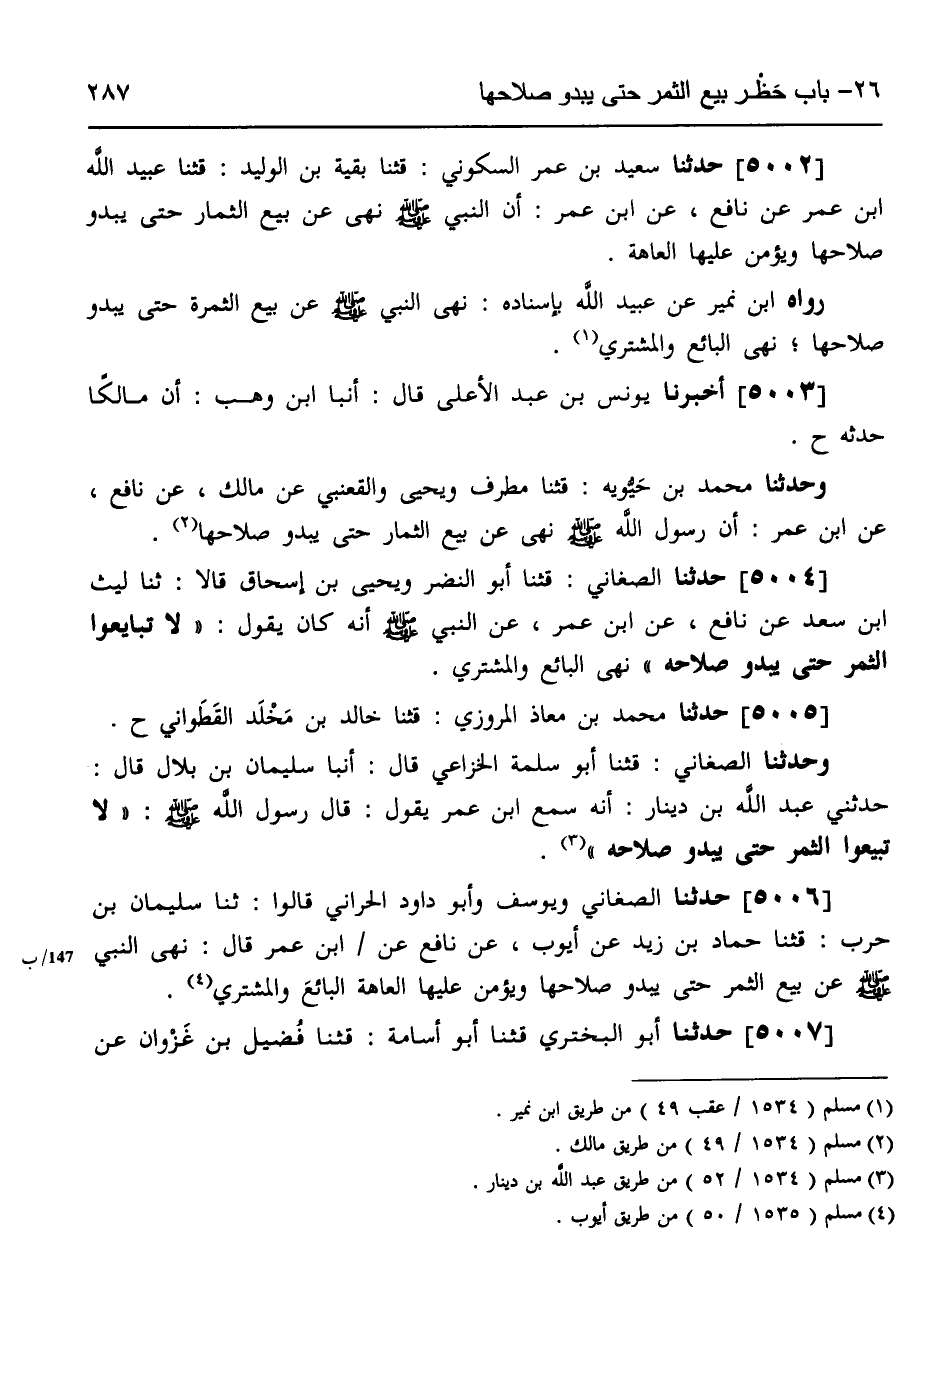 ٢٦- باب حَظْر بيع الثمر حتى يبدو صلاحها ٢٨٧
[٥٠٠٢] حدثنا سعيد بن عمر السكوني : قثنا بقية بن الوليد : قثنا عبيد اللَّه
ابن عمر عن نافع ، عن ابن عمر : أن النبي ﷺ نهى عن بيع الثمار حتى يبدو
صلاحها ويؤمن عليها العاهة .
رواه ابن نمير عن عبيد اللَّه بإسناده : نهى النبي ﷺ عن بيع الثمرة حتى يبدو
صلاحها ؛ نهى البائع والمشتري(١) .
[٥٠٠٣] أخبرنا يونس بن عبد الأعلى قال : أنبا ابن وهب : أن مالكًا
حدثه ح .
وحدثنا محمد بن حَيُّويه : قثنا مطرف ويحيى والقعنبي عن مالك ، عن نافع ،
عن ابن عمر : أن رسول اللَّه ﷺ نهى عن بيع الثمار حتى يبدو صلاحها(٢) .
[٥٠٠٤] حدثنا الصغاني : قثنا أبو النضر ويحيى بن إسحاق قالا : ثنا ليث
ابن سعد عن نافع ، عن ابن عمر ، عن النبي ﷺ أنه كان يقول : « لا تبايعوا
الثمر حتى يبدو صلاحه » نهى البائع والمشتري .
[٥٠٠٥] حدثنا محمد بن معاذ المروزي : قثنا خالد بن مَخْلَد القَطَواني ح .
وحدثنا الصغاني : قثنا أبو سلمة الخزاعي قال : أنبا سليمان بن بلال قال :
حدثني عبد اللَّه بن دينار : أنه سمع ابن عمر يقول : قال رسول اللَّه ﷺ : « لا
تبيعوا الثمر حتى يبدو صلاحه »(٣) .
[٥٠٠٦] حدثنا الصغاني ويوسف وأبو داود الحراني قالوا : ثنا سليمان بن
حرب : قثنا حماد بن زيد عن أيوب ، عن نافع عن / ابن عمر قال : نهى النبي 147/ب
ﷺ عن بيع الثمر حتى يبدو صلاحها ويؤمن عليها العاهة البائعَ والمشتري(٤) .
[٥٠٠٧] حدثنا أبو البختري قثنا أبو أسامة : قثنا فُضيل بن غَزْوان عن
(١) مسلم ( ١٥٣٤ / عقب ٤٩ ) من طريق ابن نمير .
(٢) مسلم ( ١٥٣٤ / ٤٩ ) من طريق مالك .
(٣) مسلم ( ١٥٣٤ / ٥٢ ) من طريق عبد اللَّه بن دينار .
(٤) مسلم ( ١٥٣٥ / ٥٠ ) من طريق أيوب .